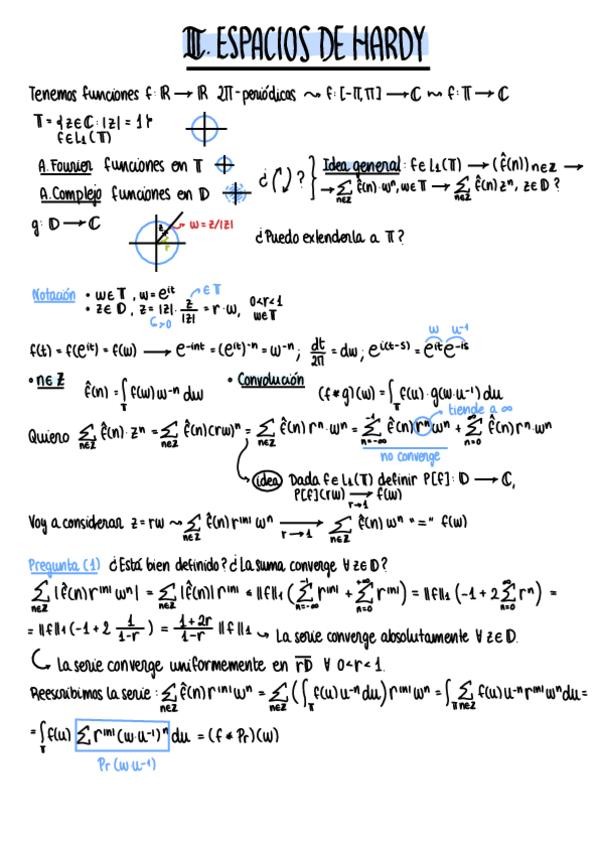 III. ESPACIOS DE HARDY
Tenemos funciones f: ℝ → ℝ 2π-periódicas ⇝ f: [-π,π] → ℂ ⇝ f: 𝕋 → ℂ
𝕋 = {z∈ℂ: |z| = 1}
f∈L₁(𝕋)
A. Fourier funciones en 𝕋
A. Complejo funciones en 𝔻
¿ ?
Idea general: f∈L₁(𝕋) → (f̂(n))n∈ℤ →
→ Σn∈ℤ f̂(n)·wⁿ, w∈𝕋 → Σn∈ℤ f̂(n)zⁿ, z∈𝔻?
g: 𝔻 → ℂ
z
w = z/|z|
¿Puedo extenderla a 𝕋?
Notación • w∈𝕋, w = e^{it} ∈𝕋
• z∈𝔻, z = |z|· z/|z| = r·w, 0<r<1 w∈𝕋
>0
w u⁻¹
f(t) = f(e^{it}) = f(w) → e^{-int} = (e^{it})^{-n} = w^{-n}; dt/2π = dw; e^{i(t-s)} = e^{it}e^{-is}
• n∈ℤ f̂(n) = ∫_𝕋 f(w)w^{-n} dw • Convolución (f*g)(w) = ∫_𝕋 f(u)·g(w·u⁻¹) du
tiende a ∞
Quiero Σn∈ℤ f̂(n)·zⁿ = Σn∈ℤ f̂(n)(rw)ⁿ = Σn∈ℤ f̂(n)rⁿ·wⁿ = Σ_{n=-∞}^{-1} f̂(n)rⁿwⁿ + Σ_{n=0}^{∞} f̂(n)rⁿ·wⁿ
no converge
idea Dada f∈L₁(𝕋) definir P[f]: 𝔻 → ℂ,
P[f](rw) →_{r→1} f(w)
Voy a considerar z = rw ⇝ Σn∈ℤ f̂(n)r^{|n|}wⁿ →_{r→1} Σn∈ℤ f̂(n)wⁿ "=" f(w)
Pregunta (1) ¿Está bien definido? ¿La suma converge ∀z∈𝔻?
Σn∈ℤ |f̂(n)r^{|n|}wⁿ| = Σn∈ℤ |f̂(n)|r^{|n|} ≤ ‖f‖₁ (Σ_{n=-∞}^{-1} r^{|n|} + Σ_{n=0}^{+∞} r^{|n|}) = ‖f‖₁ (-1 + 2Σ_{n=0}^{∞} rⁿ) =
= ‖f‖₁ (-1 + 2 1/(1-r)) = (1+2r)/(1-r) ‖f‖₁ ↪ La serie converge absolutamente ∀z∈𝔻.
↪ La serie converge uniformemente en r𝔻̄ ∀ 0<r<1.
Reescribimos la serie: Σn∈ℤ f̂(n)r^{|n|}wⁿ = Σn∈ℤ (∫_𝕋 f(u)u^{-n}du) r^{|n|}wⁿ = ∫_𝕋 Σn∈ℤ f(u)u^{-n}r^{|n|}wⁿdu =
= ∫_𝕋 f(u) Σn∈ℤ r^{|n|}(w·u⁻¹)ⁿ du = (f * Pr)(w)
Pr(w·u⁻¹)